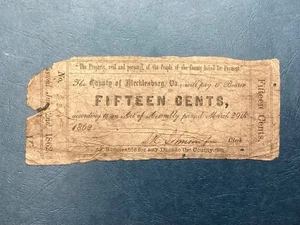 The Property, real and personal, of the People of the County bound for Payment.
The County of Mecklenburg, Va., will pay to Bearer
FIFTEEN CENTS,
according to an Act of Assembly passed March 29th
1862.
Clerk
Receivable for any Dues to the County
No.
Fifteen Cents.